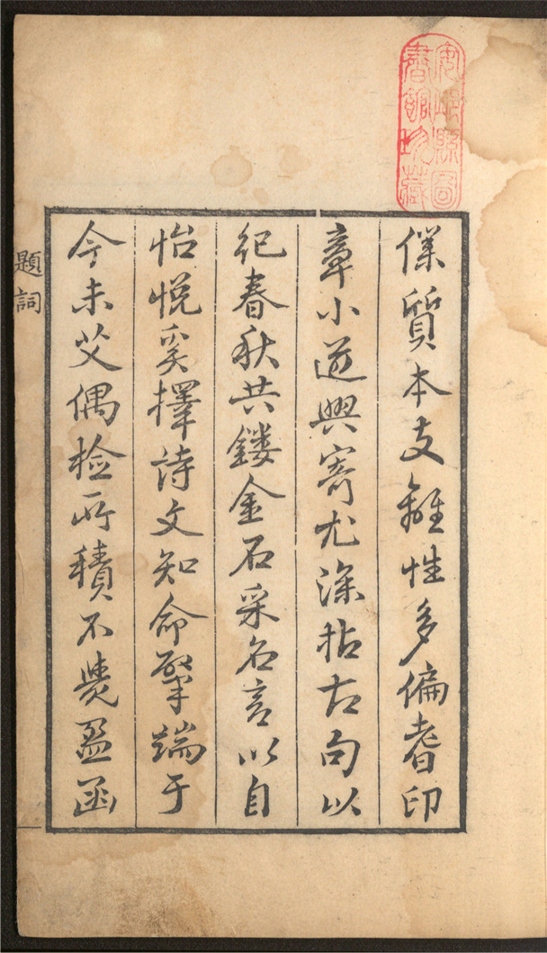 縣圖
書館藏
僕質本支離性多偏耆印
章小道興寄尤深拈古句以
紀春秋共鏤金石采名言以自
怡悅爰擇詩文知命肇端于
今未艾偶檢所積不覺盈函
題詞